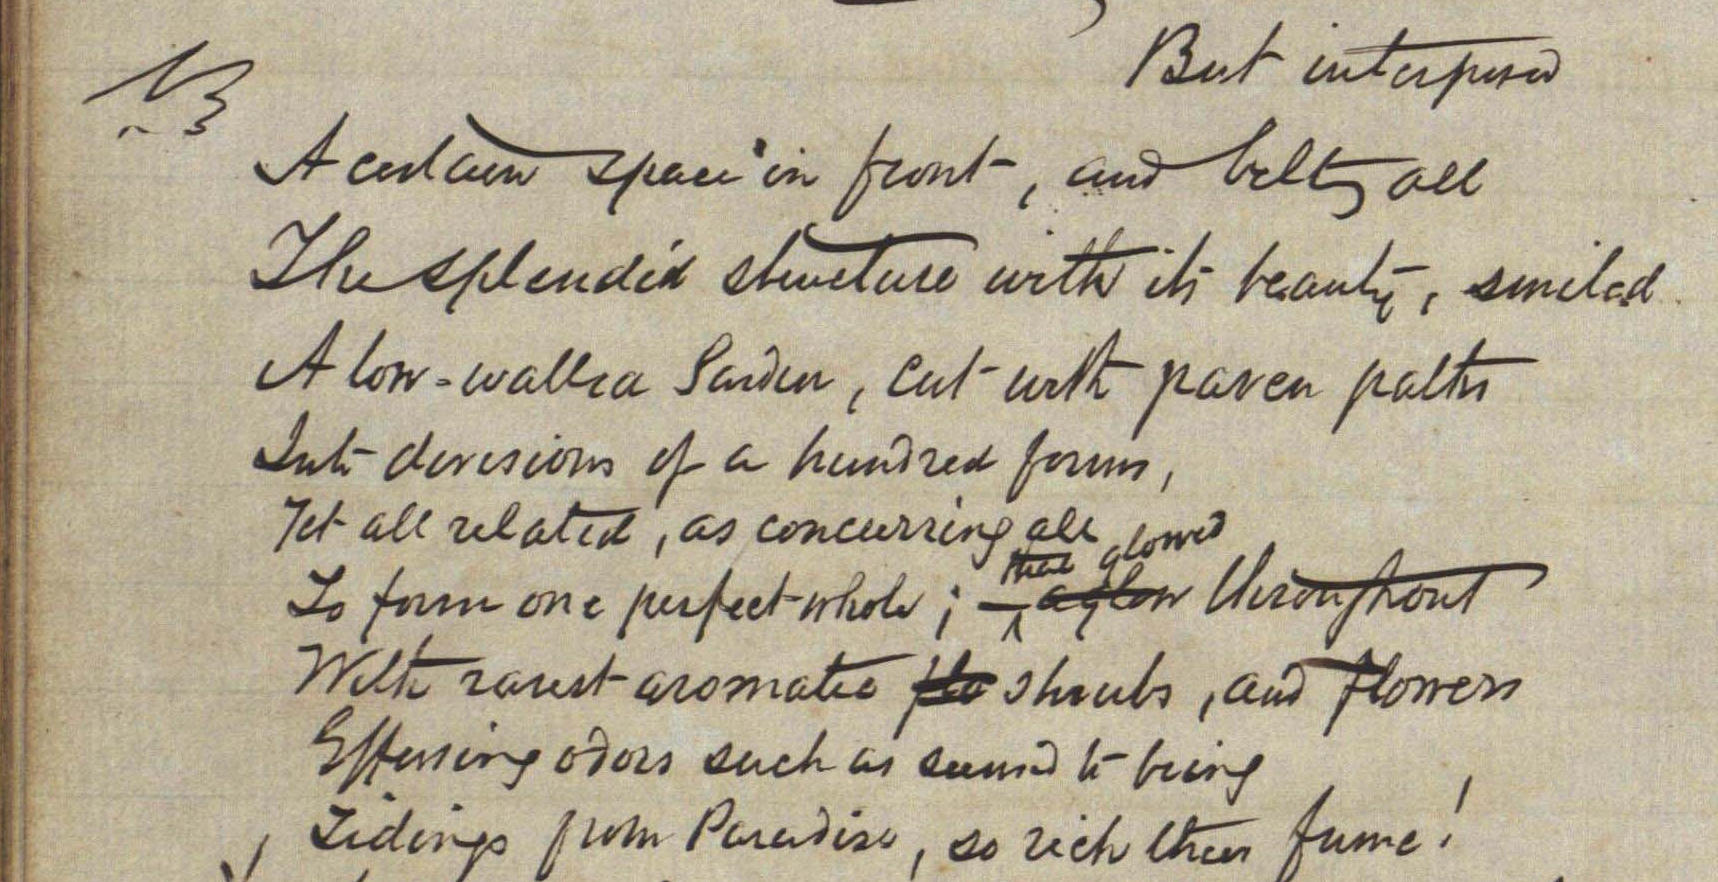 But interposed
NB
A certain space in front, and belting all
The splendid structure with its beauty, smiled
A low-walled Garden, cut with paven paths
Into divisions of a hundred forms,
Yet all related, as concurring all
that glowed
To form one perfect whole; – aglow throughout
With rarest aromatic flo shrubs, and flowers
Effusing odors such as seemed to bring
Tidings from Paradise, so rich their fume!